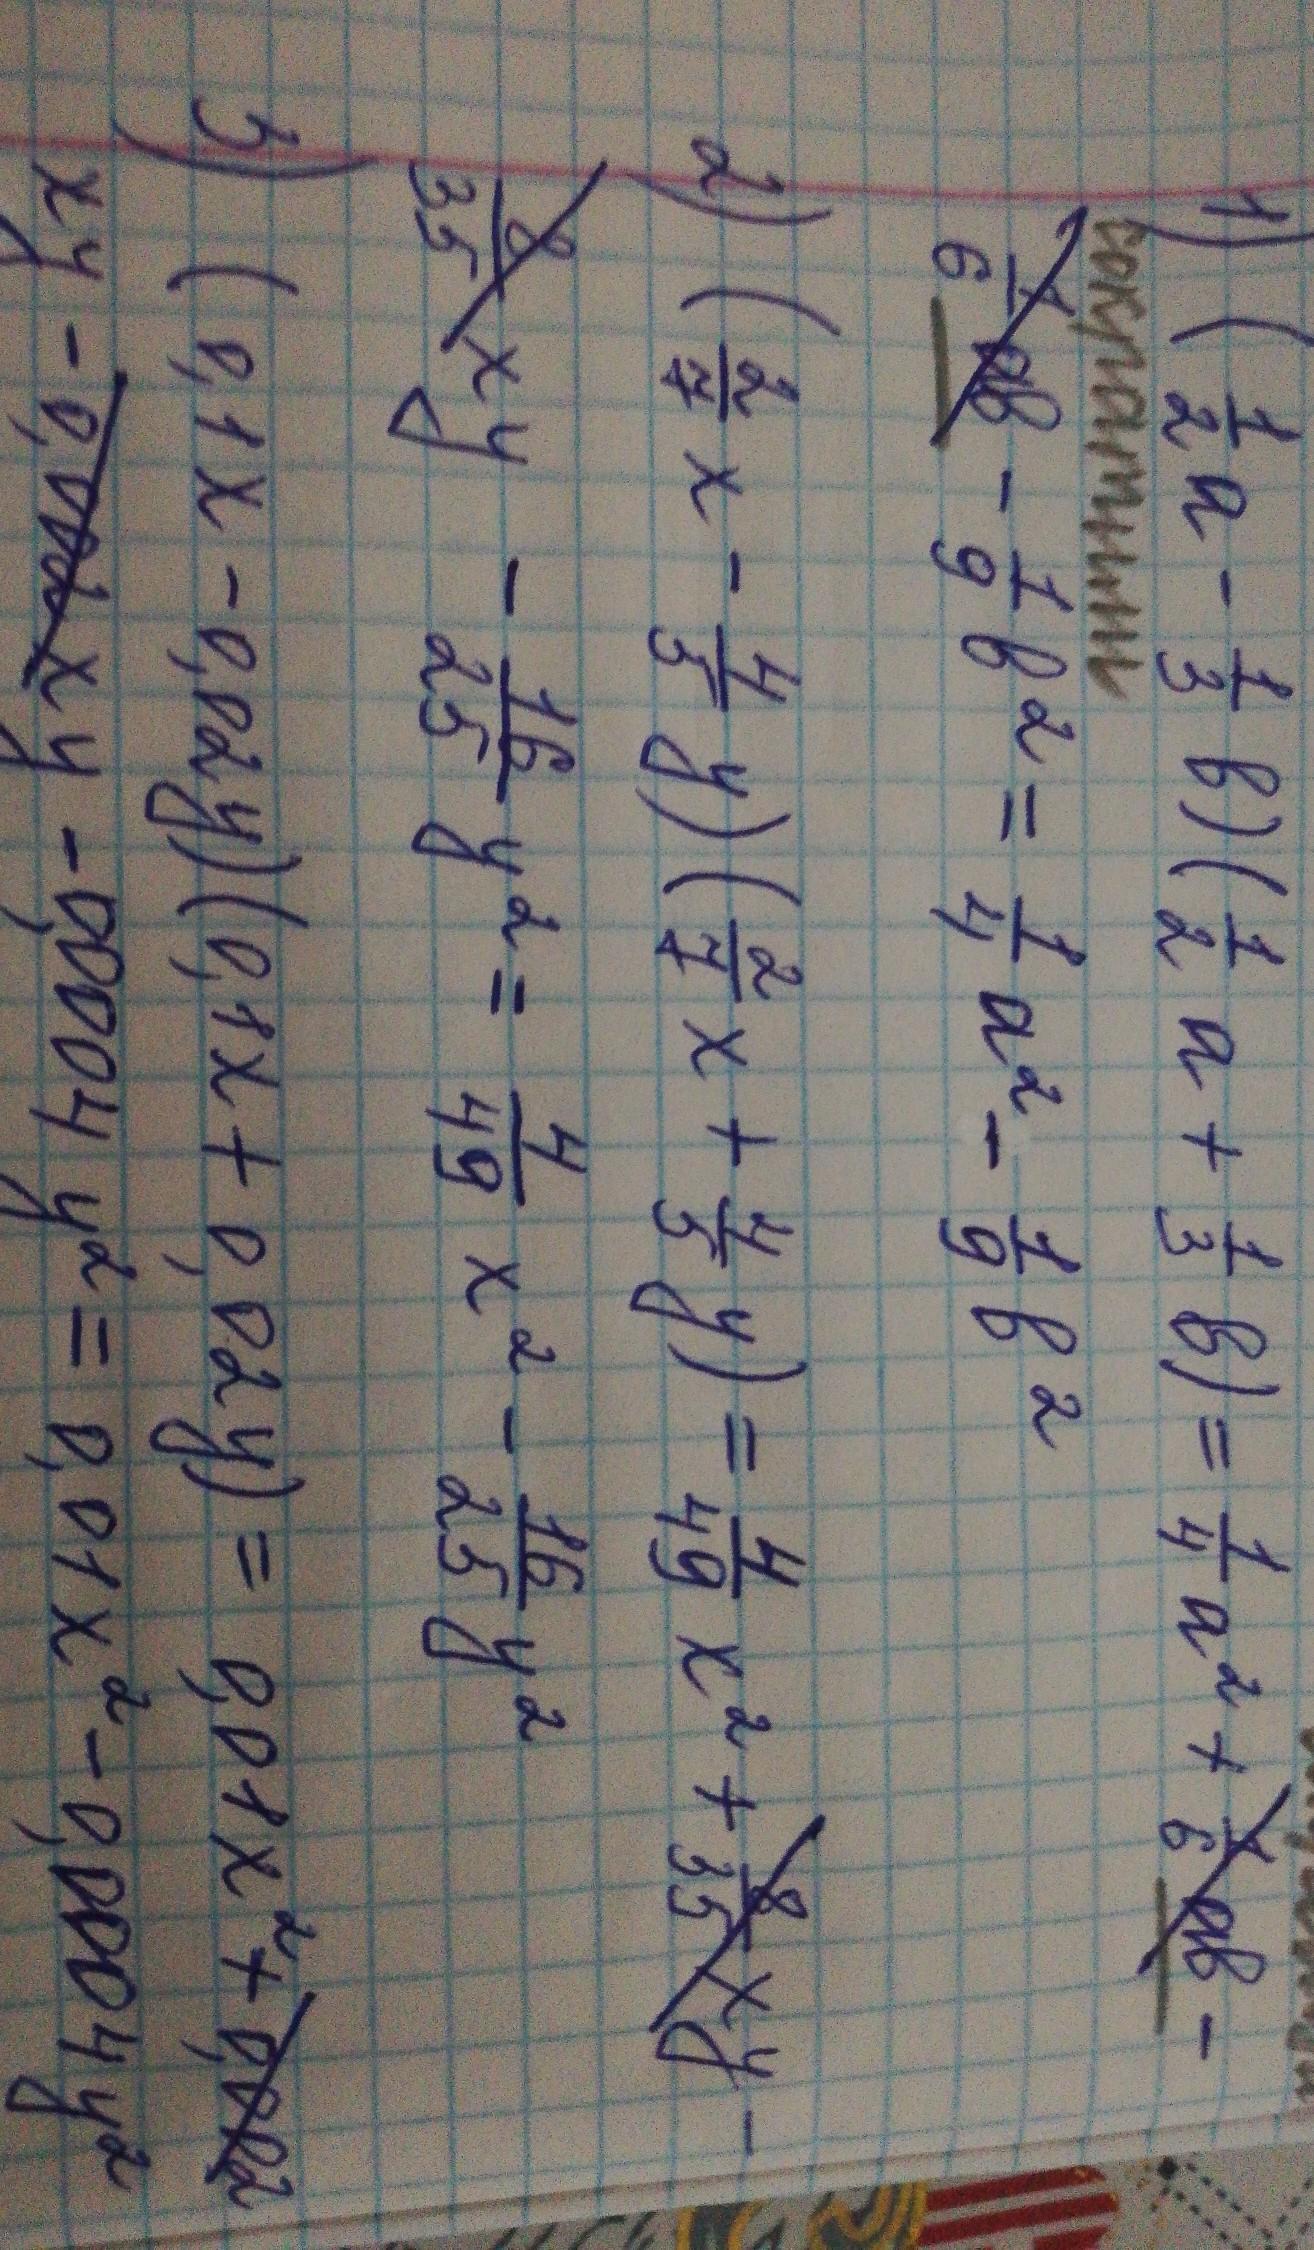 1) (1/2 a - 1/3 b)(1/2 a + 1/3 b) = 1/4 a² + 1/6 ab -
сократили
1/6 ab - 1/9 b² = 1/4 a² - 1/9 b²
2) (2/7 x - 4/5 y)(2/7 x + 4/5 y) = 4/49 x² + 8/35 xy -
8/35 xy - 16/25 y² = 4/49 x² - 16/25 y²
3) (0,1x - 0,02y)(0,1x + 0,02y) = 0,01x² + 0,002
xy - 0,002xy - 0,0004y² = 0,01x² - 0,0004y²